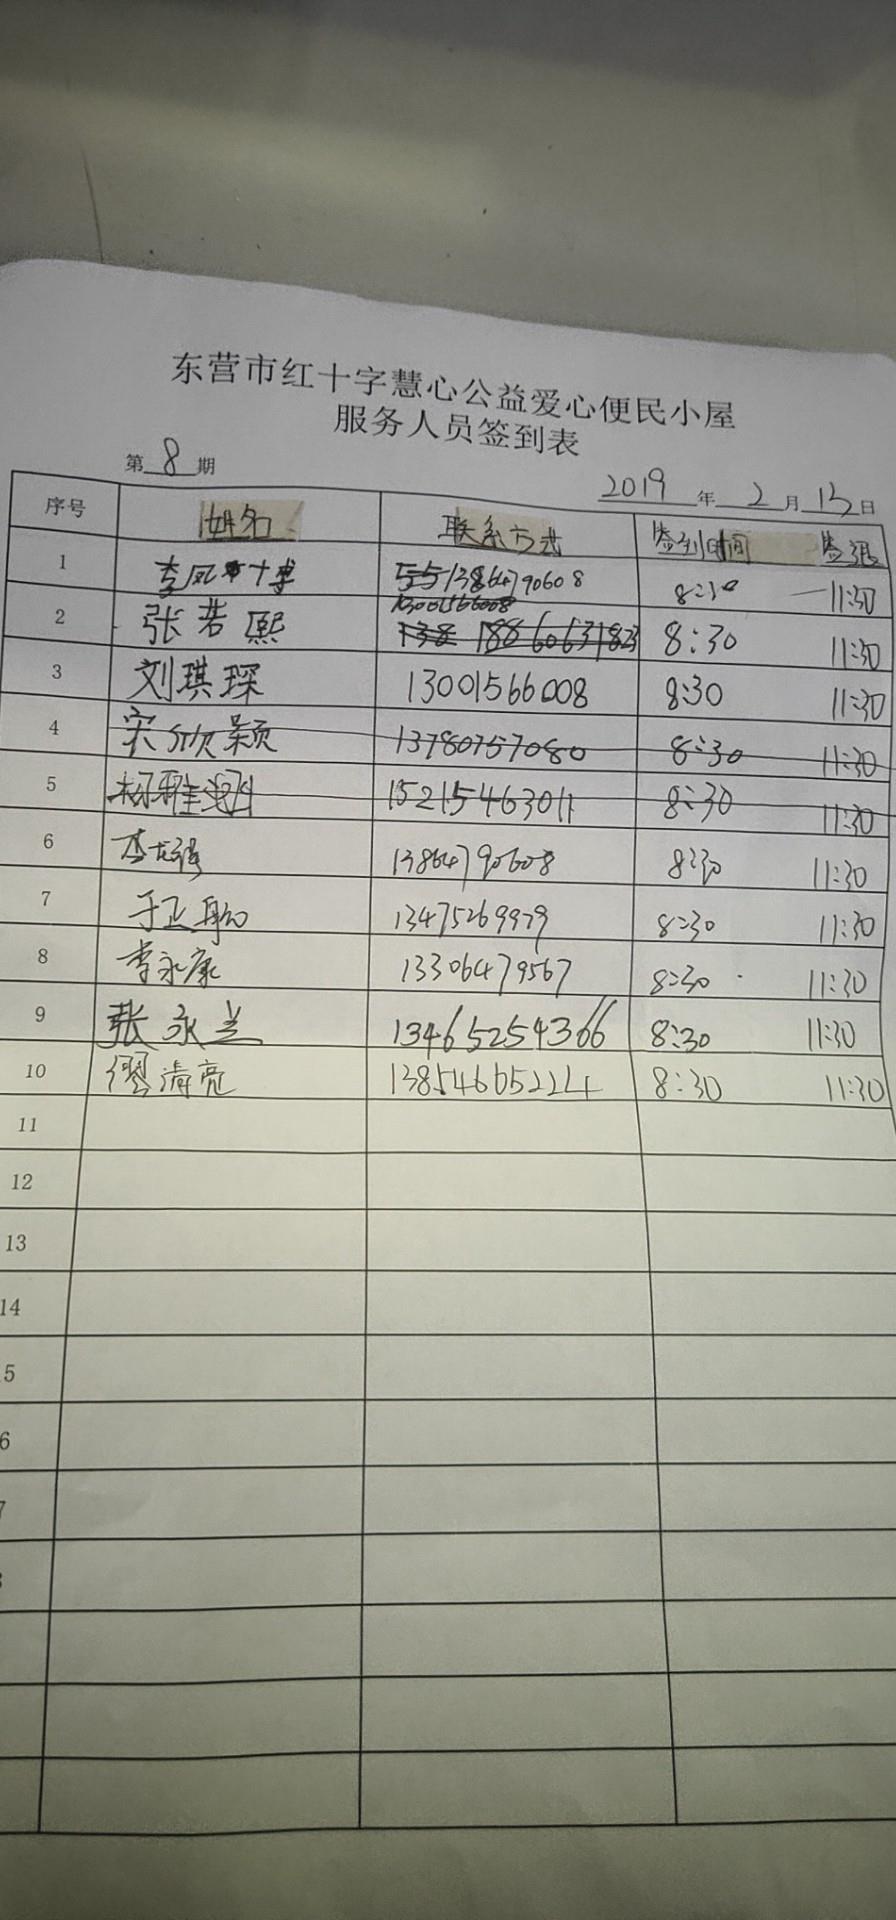 东营市红十字慧心公益爱心便民小屋
服务人员签到表
第 8 期 2019 年 2 月 13 日
序号 姓名 联系方式 签到时间 签退
1 李凤 13864790608 8:30 11:30
13001566008
2 张若熙 138 18860631823 8:30 11:30
3 刘琪琛 13001566008 8:30 11:30
4 宋欣颖 13780757080 8:30 11:30
5 杨雅 15215463011 8:30 11:30
6 13864790608 8:30 11:30
7 于正 13475269979 8:30 11:30
8 李永康 13306479567 8:30 11:30
9 张永兰 13465254366 8:30 11:30
10 缪清亮 13854665224 8:30 11:30
11
12
13
14
5
6
7